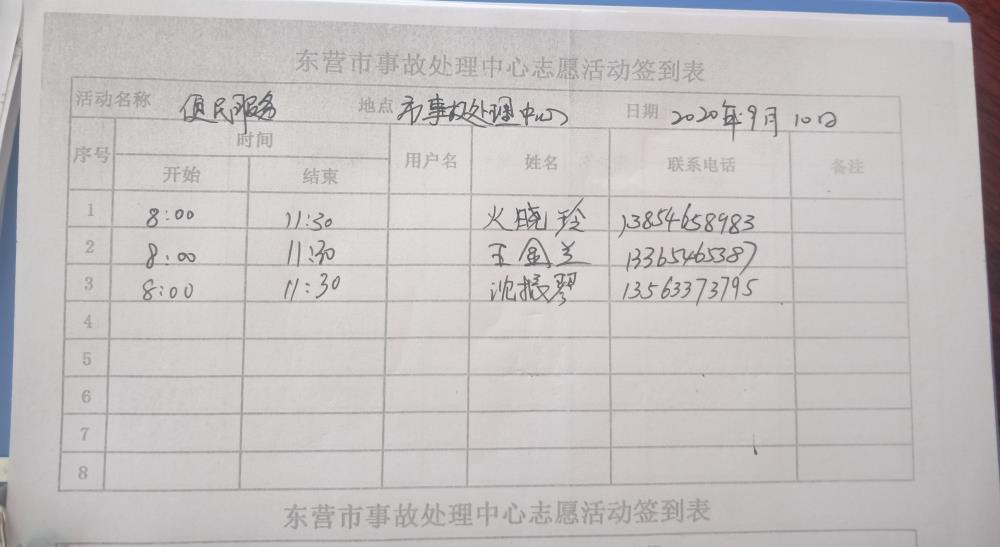 东营市事故处理中心志愿活动签到表
活动名称 便民服务 地点 市事故处理中心 日期 2020年9月10日
序号 时间 用户名 姓名 联系电话 备注
开始 结束
1 8:00 11:30 火晓玲 13854658983
2 8:00 11:30 王金兰 13365465387
3 8:00 11:30 沈振琴 13563373795
4
5
6
7
8
东营市事故处理中心志愿活动签到表